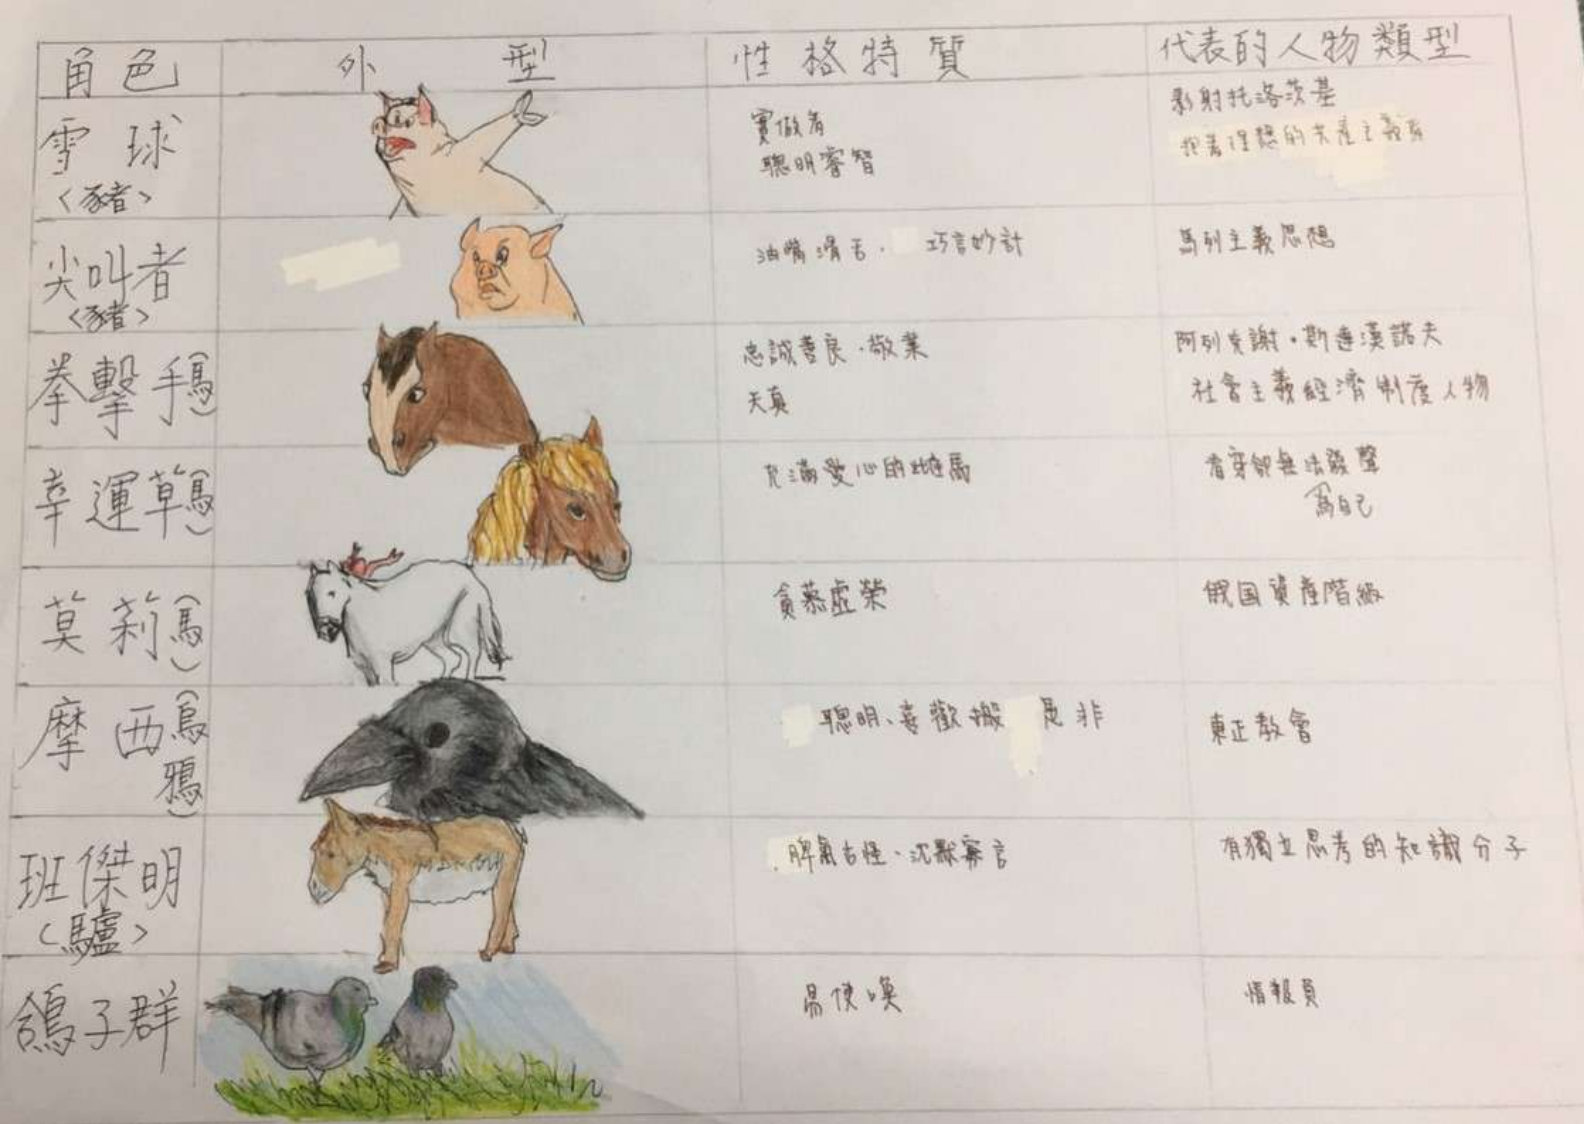 角色 外型 性格特質 代表的人物類型
雪球
<豬>
實做者
聰明睿智
影射托洛茨基
抱著理想的共產主義者
尖叫者
<豬>
油嘴滑舌. 巧言妙計
馬列主義思想
拳擊手(馬)
忠誠善良.敬業
天真
阿列克謝.斯達漢諾夫
社會主義經濟制度人物
幸運草(馬)
充滿愛心的雌馬
看穿卻無法發聲
為自己
莫莉(馬)
貪慕虛榮
俄国資產階級
摩西(烏鴉)
聰明、喜歡搬 是非
東正教會
班傑明
<驢>
脾氣古怪.沈默寡言
有獨立思考的知識分子
鴿子群
易使喚
情報員